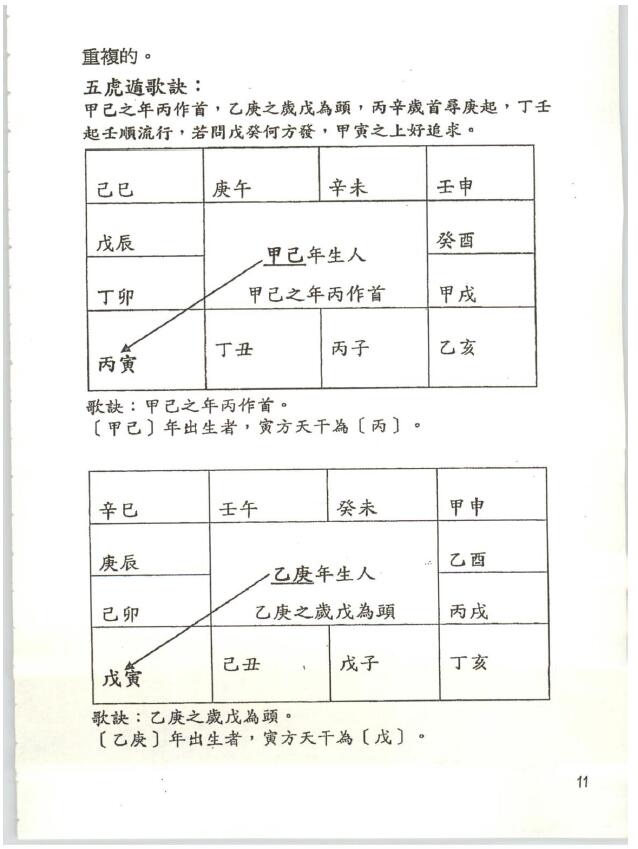 重複的。
五虎遁歌訣：
甲己之年丙作首，乙庚之歲戊為頭，丙辛歲首尋庚起，丁壬
起壬順流行，若問戊癸何方發，甲寅之上好追求。
己巳 庚午 辛未 壬申
戊辰 癸酉
甲己年生人
丁卯 甲己之年丙作首 甲戌
丙寅 丁丑 丙子 乙亥
歌訣：甲己之年丙作首。
〔甲己〕年出生者，寅方天干為〔丙〕。
辛巳 壬午 癸未 甲申
庚辰 乙酉
乙庚年生人
己卯 乙庚之歲戊為頭 丙戌
戊寅 己丑 戊子 丁亥
歌訣：乙庚之歲戊為頭。
〔乙庚〕年出生者，寅方天干為〔戊〕。
11